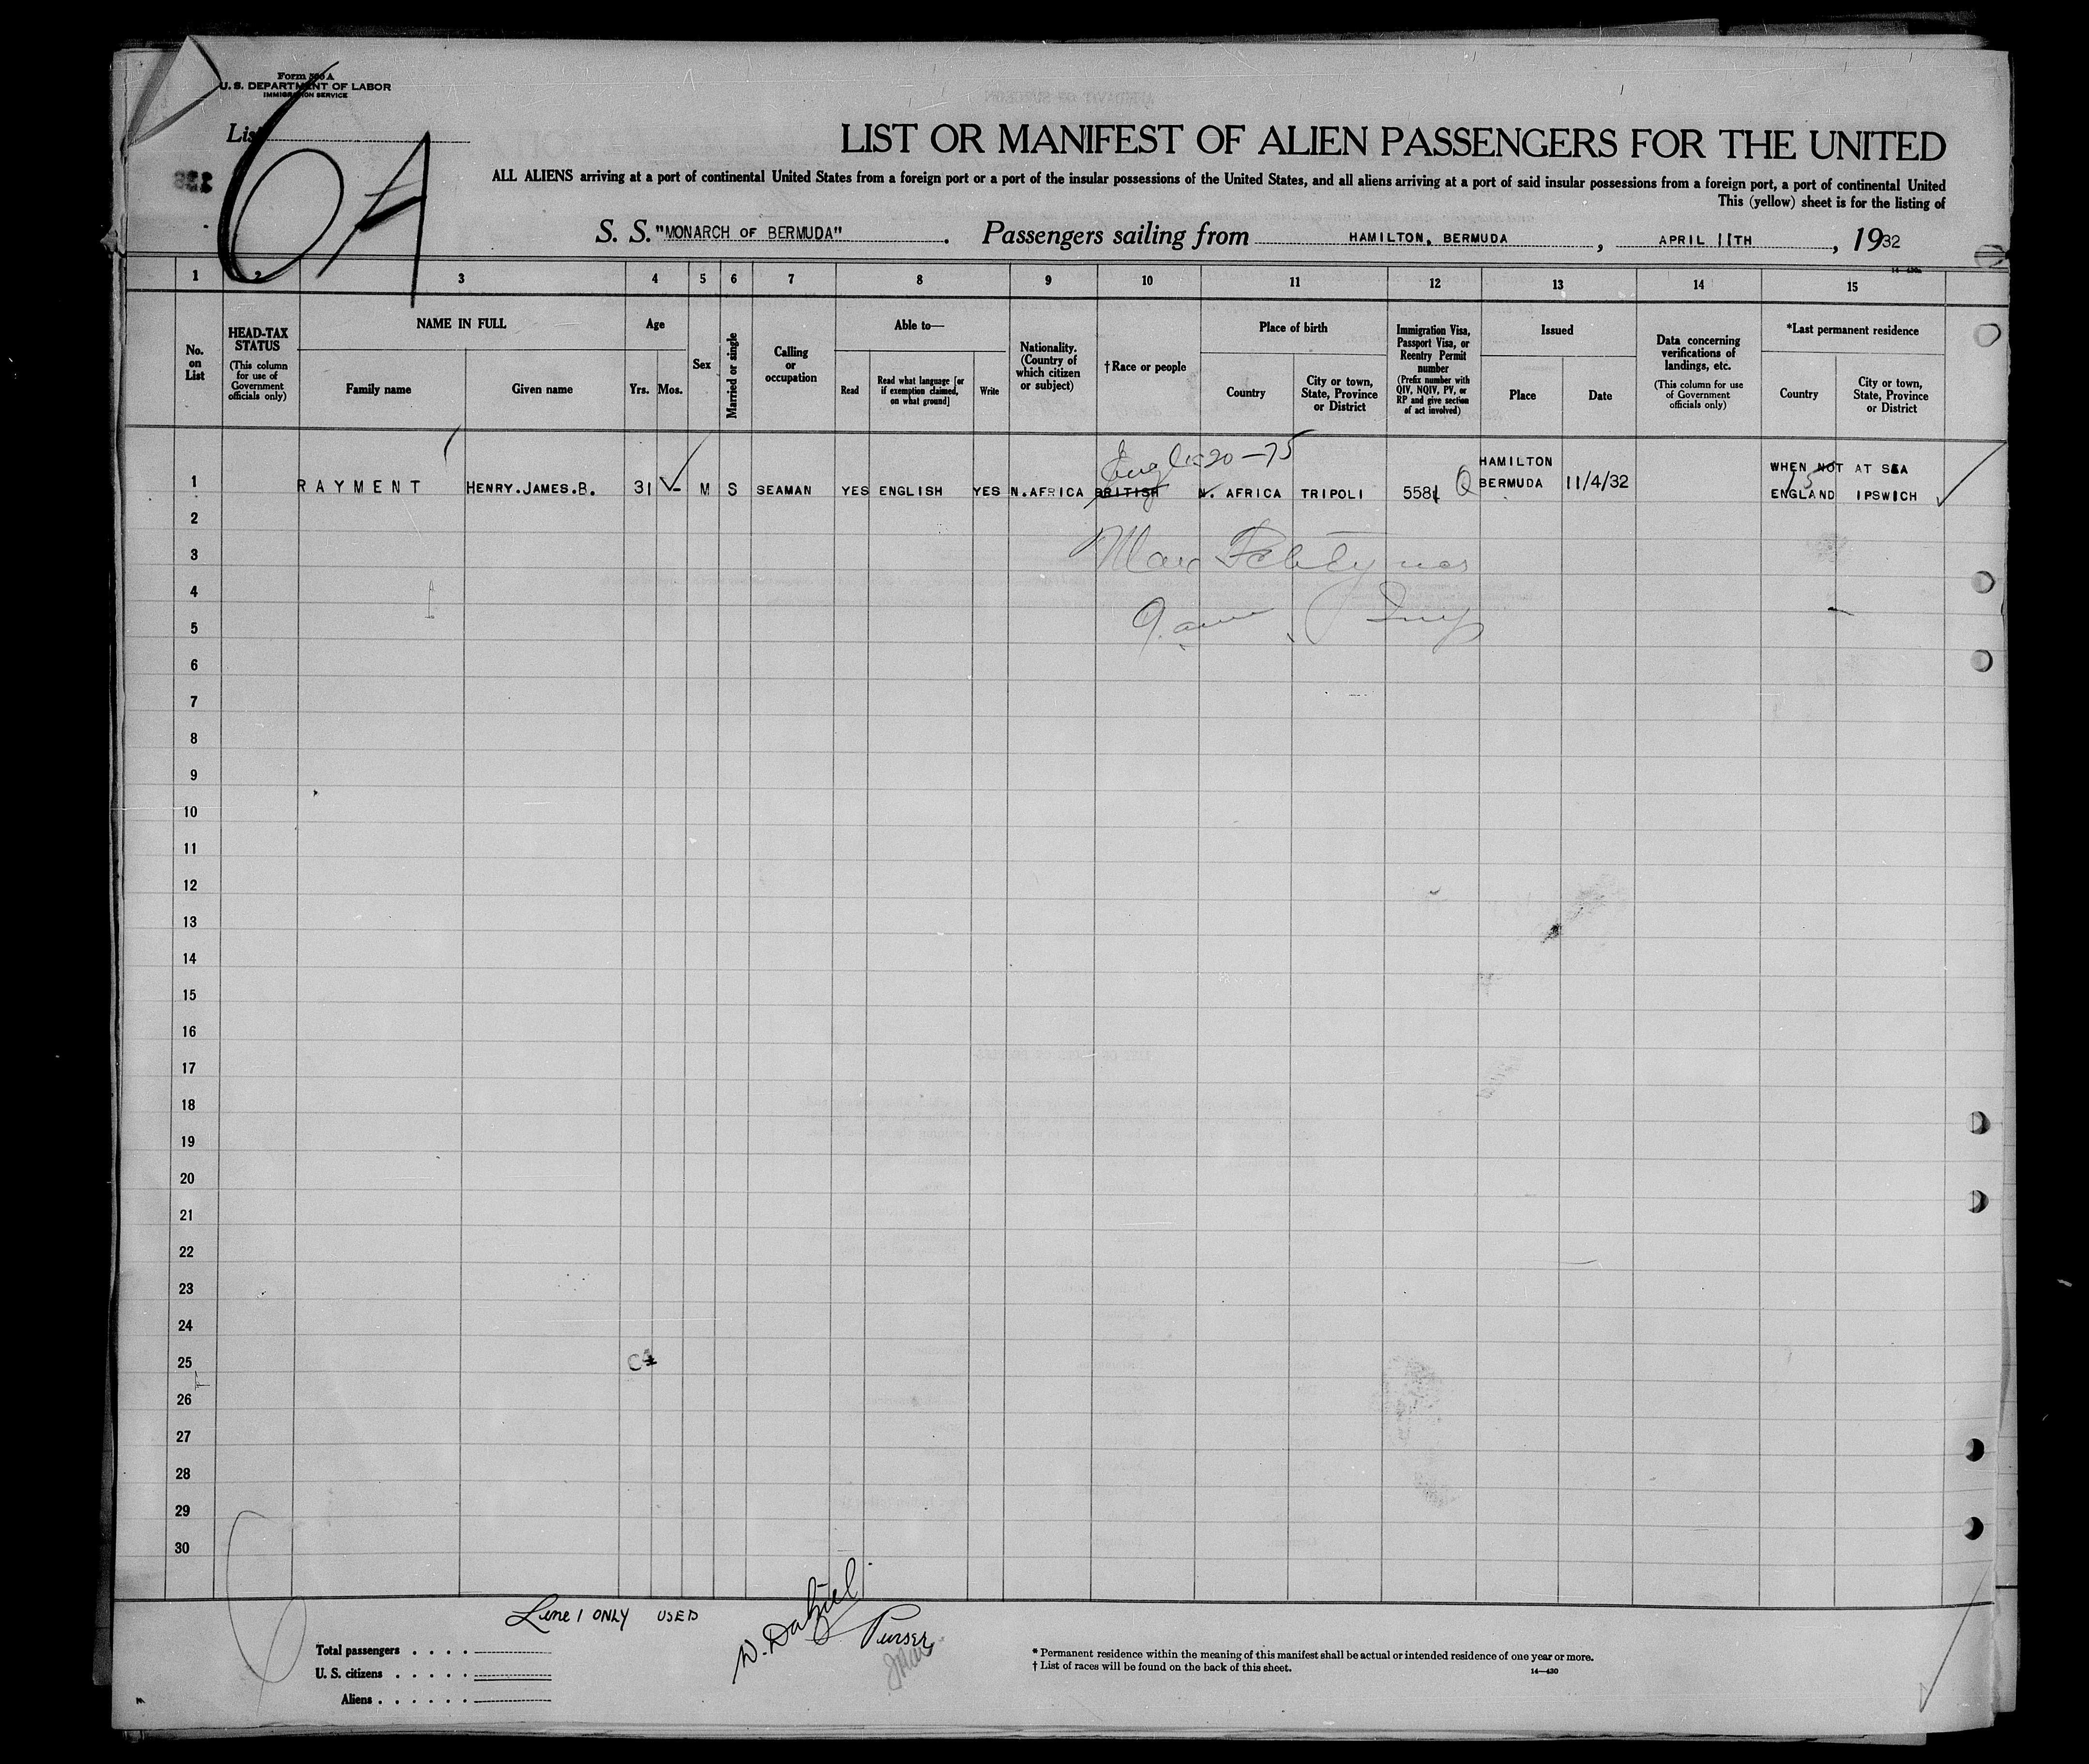 Form 500 A
U. S. DEPARTMENT OF LABOR
IMMIGRATION SERVICE
List
6A
LIST OR MANIFEST OF ALIEN PASSENGERS FOR THE UNITED
ALL ALIENS arriving at a port of continental United States from a foreign port or a port of the insular possessions of the United States, and all aliens arriving at a port of said insular possessions from a foreign port, a port of continental United
This (yellow) sheet is for the listing of
S. S. "MONARCH OF BERMUDA". Passengers sailing from HAMILTON, BERMUDA, APRIL 11TH, 1932
14—430a
1 2 3 4 5 6 7 8 9 10 11 12 13 14 15
No. on List
HEAD-TAX STATUS
(This column for use of Government officials only)
NAME IN FULL
Family name
Given name
Age
Yrs. Mos.
Sex
Married or single
Calling or occupation
Able to—
Read
Read what language [or if exemption claimed, on what ground]
Write
Nationality. (Country of which citizen or subject)
† Race or people
Place of birth
Country
City or town, State, Province or District
Immigration Visa, Passport Visa, or Reentry Permit number
(Prefix number with QIV, NQIV, PV, or RP and give section of act involved)
Issued
Place
Date
Data concerning verifications of landings, etc.
(This column for use of Government officials only)
*Last permanent residence
Country
City or town, State, Province or District
HAMILTON WHEN NOT AT SEA
1 RAYMENT HENRY.JAMES.B. 31 - M S SEAMAN YES ENGLISH YES N.AFRICA BRITISH N. AFRICA TRIPOLI 5581 Q BERMUDA 11/4/32 ENGLAND IPSWICH
2
3
4
5
6
7
8
9
10
11
12
13
14
15
16
17
18
19
20
21
22
23
24
25
26
27
28
29
30
Line 1 ONLY USED
Total passengers
U. S. citizens
Aliens
N. Dalziel
Purser
* Permanent residence within the meaning of this manifest shall be actual or intended residence of one year or more.
† List of races will be found on the back of this sheet.
14—430